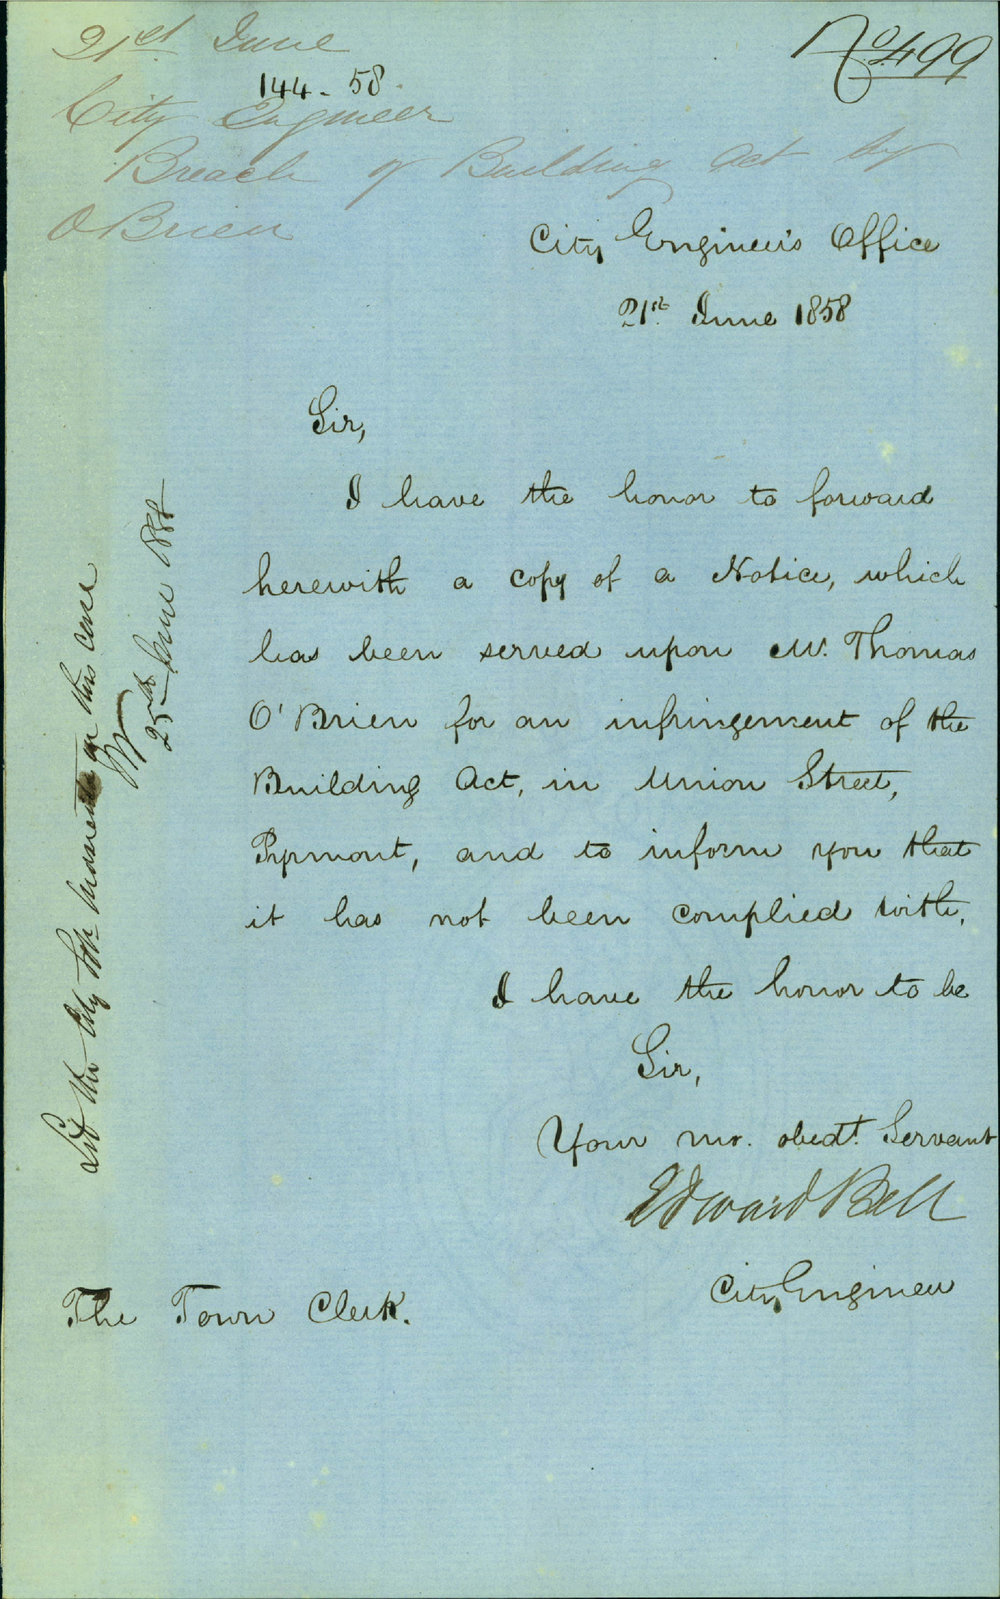 21st June
No. 499
144-58.
City Engineer
Breach of Building Act by
O'Brien
City Engineer's Office
21st June 1858
Sir,
I have the honor to forward
herewith a copy of a Notice, which
has been served upon Mr. Thomas
O'Brien for an infringement of the
Building Act, in Union Street,
Pyrmont, and to inform you that
it has not been complied with.
I have the honor to be
Sir,
Your mo. obedt. Servant
Edward Bell
City Engineer
The Town Clerk.
Let the City in this case
25th June